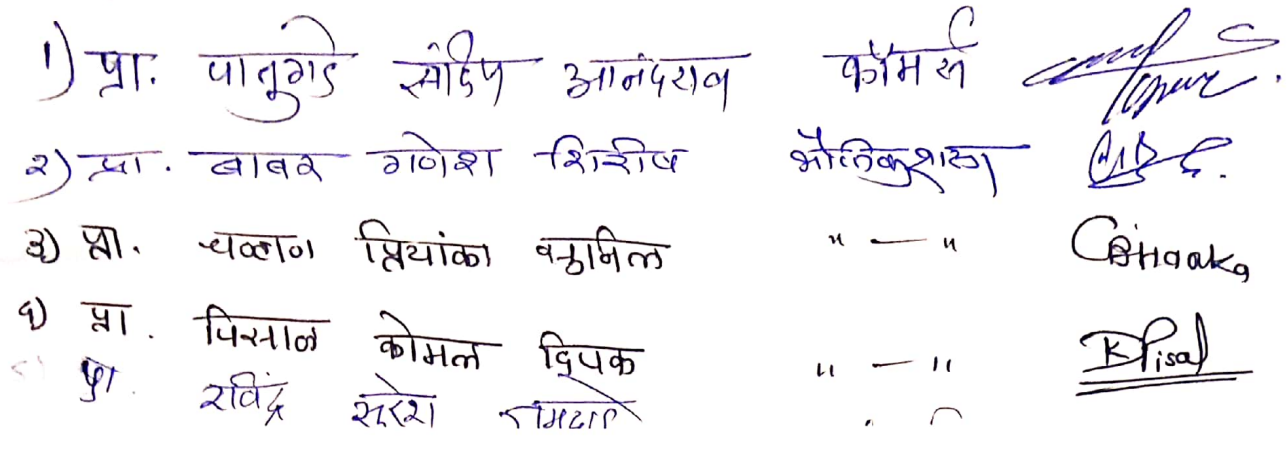 १) प्रा. पातुगडे संदिप आनंदराव कॉमर्स
२) प्रा. बाबर गणेश शिरीष भौतिकशास्त्र
३) प्रा. चव्हाण प्रियांका " — "
४) प्रा. पिसाळ कोमल दिपक " — " KPisal
प्रा. रविंद्र सुरेश